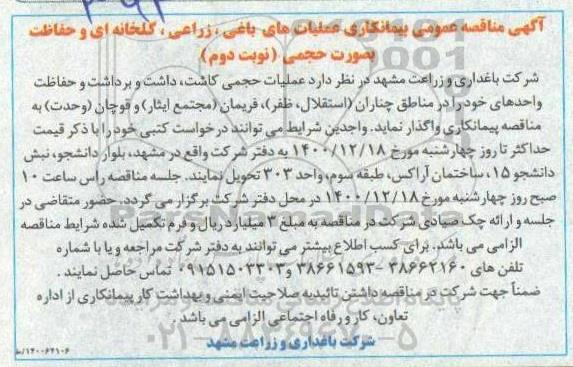 آگهی مناقصه عمومی پیمانکاری عملیات های باغی، زراعی، گلخانه ای و حفاظت
بصورت حجمی (نوبت دوم)
شرکت باغداری و زراعت مشهد در نظر دارد عملیات حجمی کاشت، داشت و برداشت و حفاظت
واحدهای خود را در مناطق چناران (استقلال، ظفر)، فریمان (مجتمع ایثار) و قوچان (وحدت) به
مناقصه پیمانکاری واگذار نماید. واجدین شرایط می توانند درخواست کتبی خود را با ذکر قیمت
حداکثر تا روز چهارشنبه مورخ ۱۴۰۰/۱۲/۱۸ به دفتر شرکت واقع در مشهد، بلوار دانشجو، نبش
دانشجو ۱۵، ساختمان آراکس، طبقه سوم، واحد ۳۰۳ تحویل نمایند. جلسه مناقصه راس ساعت ۱۰
صبح روز چهارشنبه مورخ ۱۴۰۰/۱۲/۱۸ در محل دفتر شرکت برگزار می گردد. حضور متقاضی در
جلسه و ارائه چک صیادی شرکت در مناقصه به مبلغ ۳ میلیارد ریال و فرم تکمیل شده شرایط مناقصه
الزامی می باشد. برای کسب اطلاع بیشتر می توانند به دفتر شرکت مراجعه و یا با شماره
تلفن های ۳۸۶۶۲۱۶۰ -۳۸۶۶۱۵۹۳ و ۰۹۱۵۱۵۰۳۳۰۳ تماس حاصل نمایند.
ضمناً جهت شرکت در مناقصه داشتن تائیدیه صلاحیت ایمنی و بهداشت کار پیمانکاری از اداره
تعاون، کار و رفاه اجتماعی الزامی می باشد.
شرکت باغداری و زراعت مشهد
۱۴۰۰۶۴۱۰۶/ط
ParsNamadData
۰۲۱-۸۸۳۴۹۶۷۰-۵